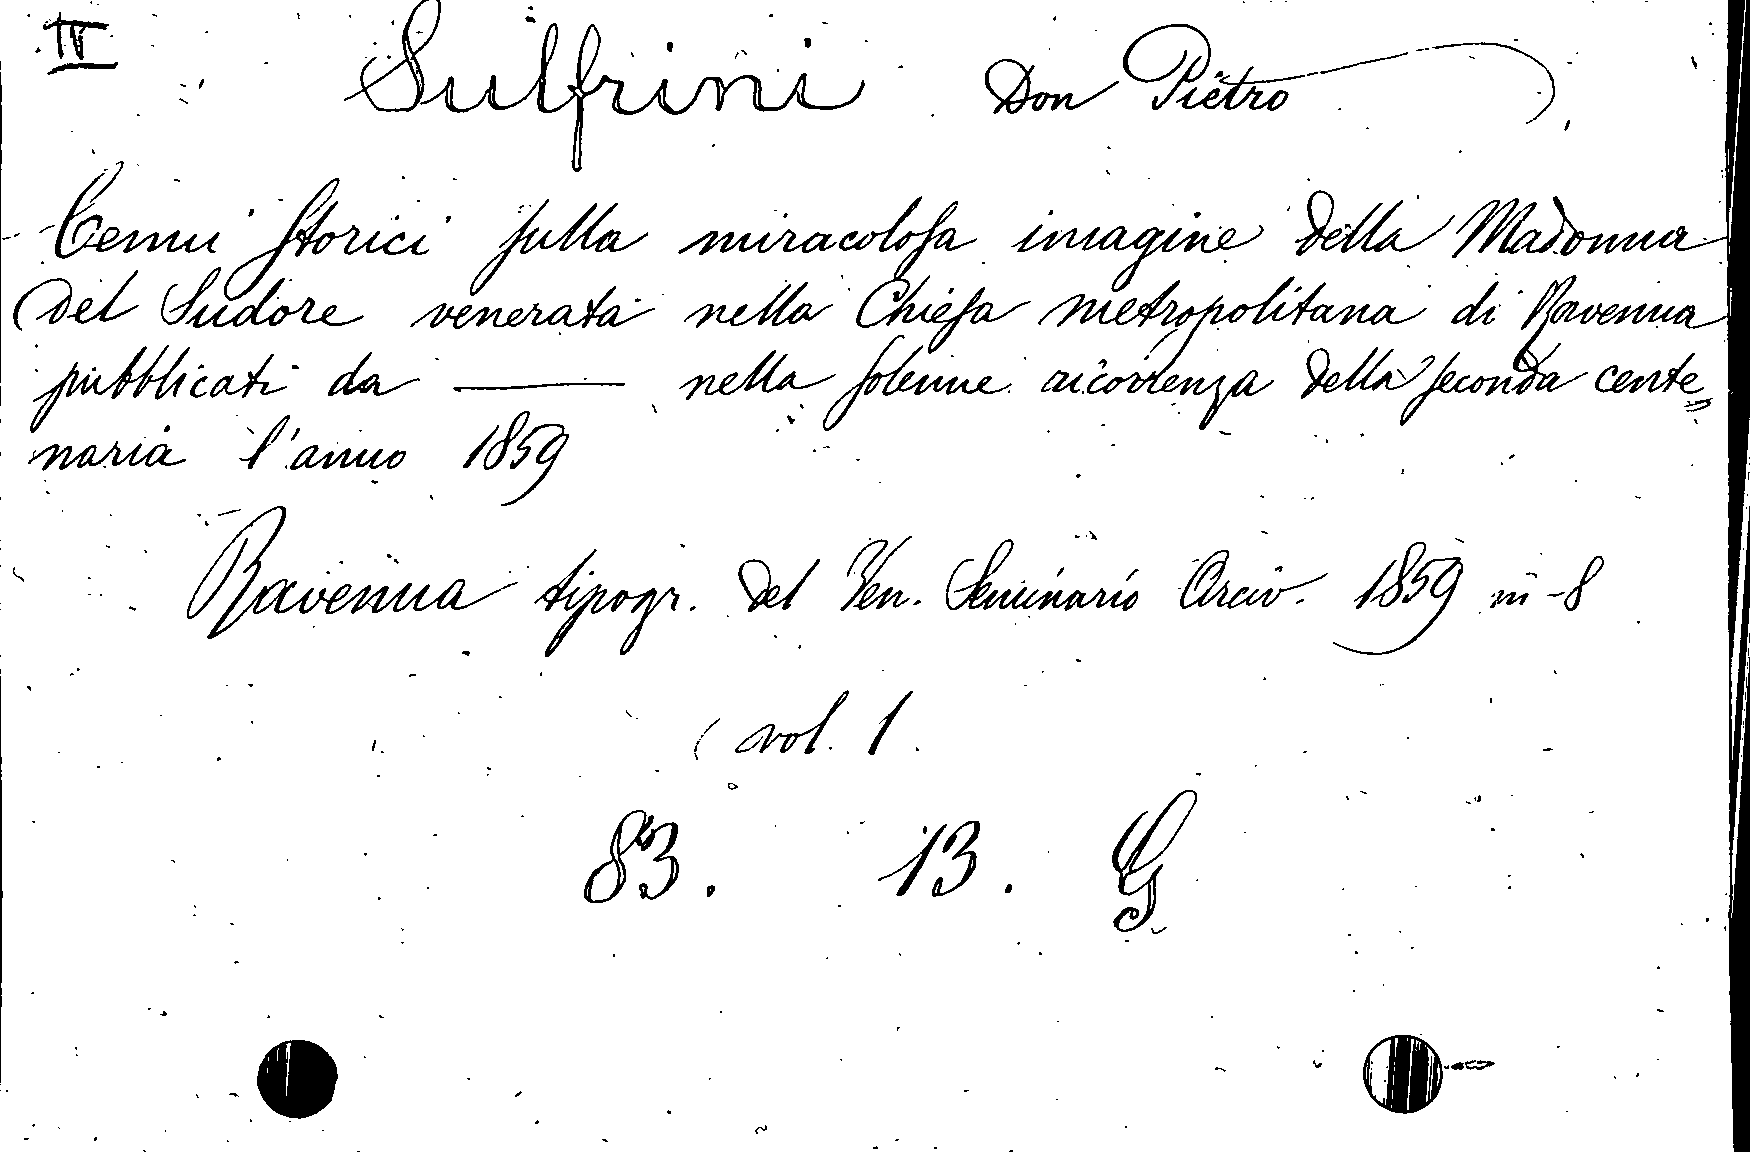 IV
Sulfrini Don Pietro
Cenni storici sulla miracolosa imagine della Madonna
del Sudore venerata nella Chiesa metropolitana di Ravenna
pubblicati da ——— nella solenne ricorrenza della seconda cente„
naria l'anno 1859
Ravenna tipogr. del Ven. Seminario Arciv. 1859 in-8
vol. 1.
83. 13. G